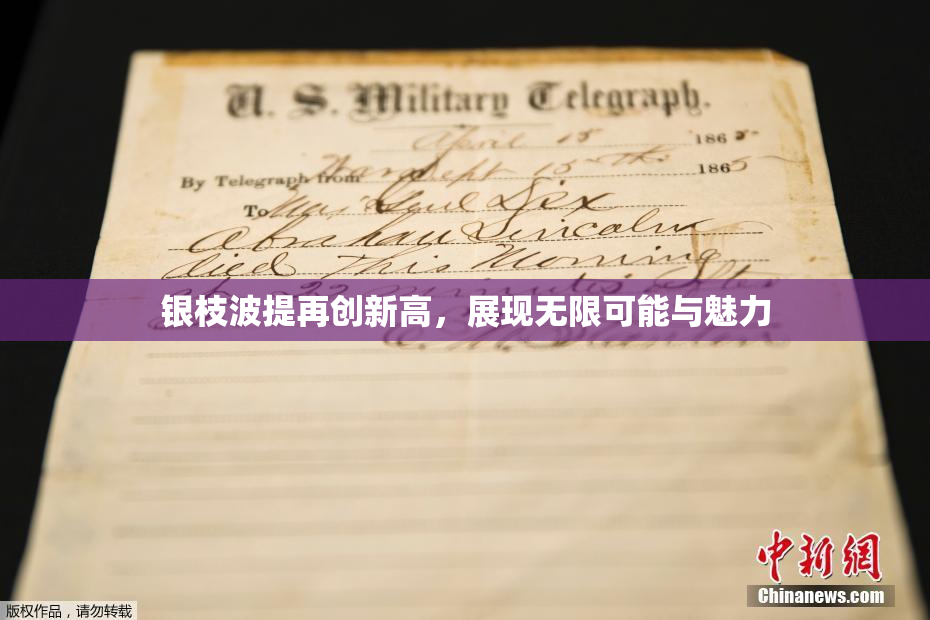 U. S. Military Telegraph.
April 15 1865
By Telegraph from War Dept 15th 1865
To Maj Genl Dix
Abraham Lincoln
died This Morning
22 minutes after
银枝波提再创新高，展现无限可能与魅力
E. M. Stanton
中新网
Chinanews.com
版权作品，请勿转载